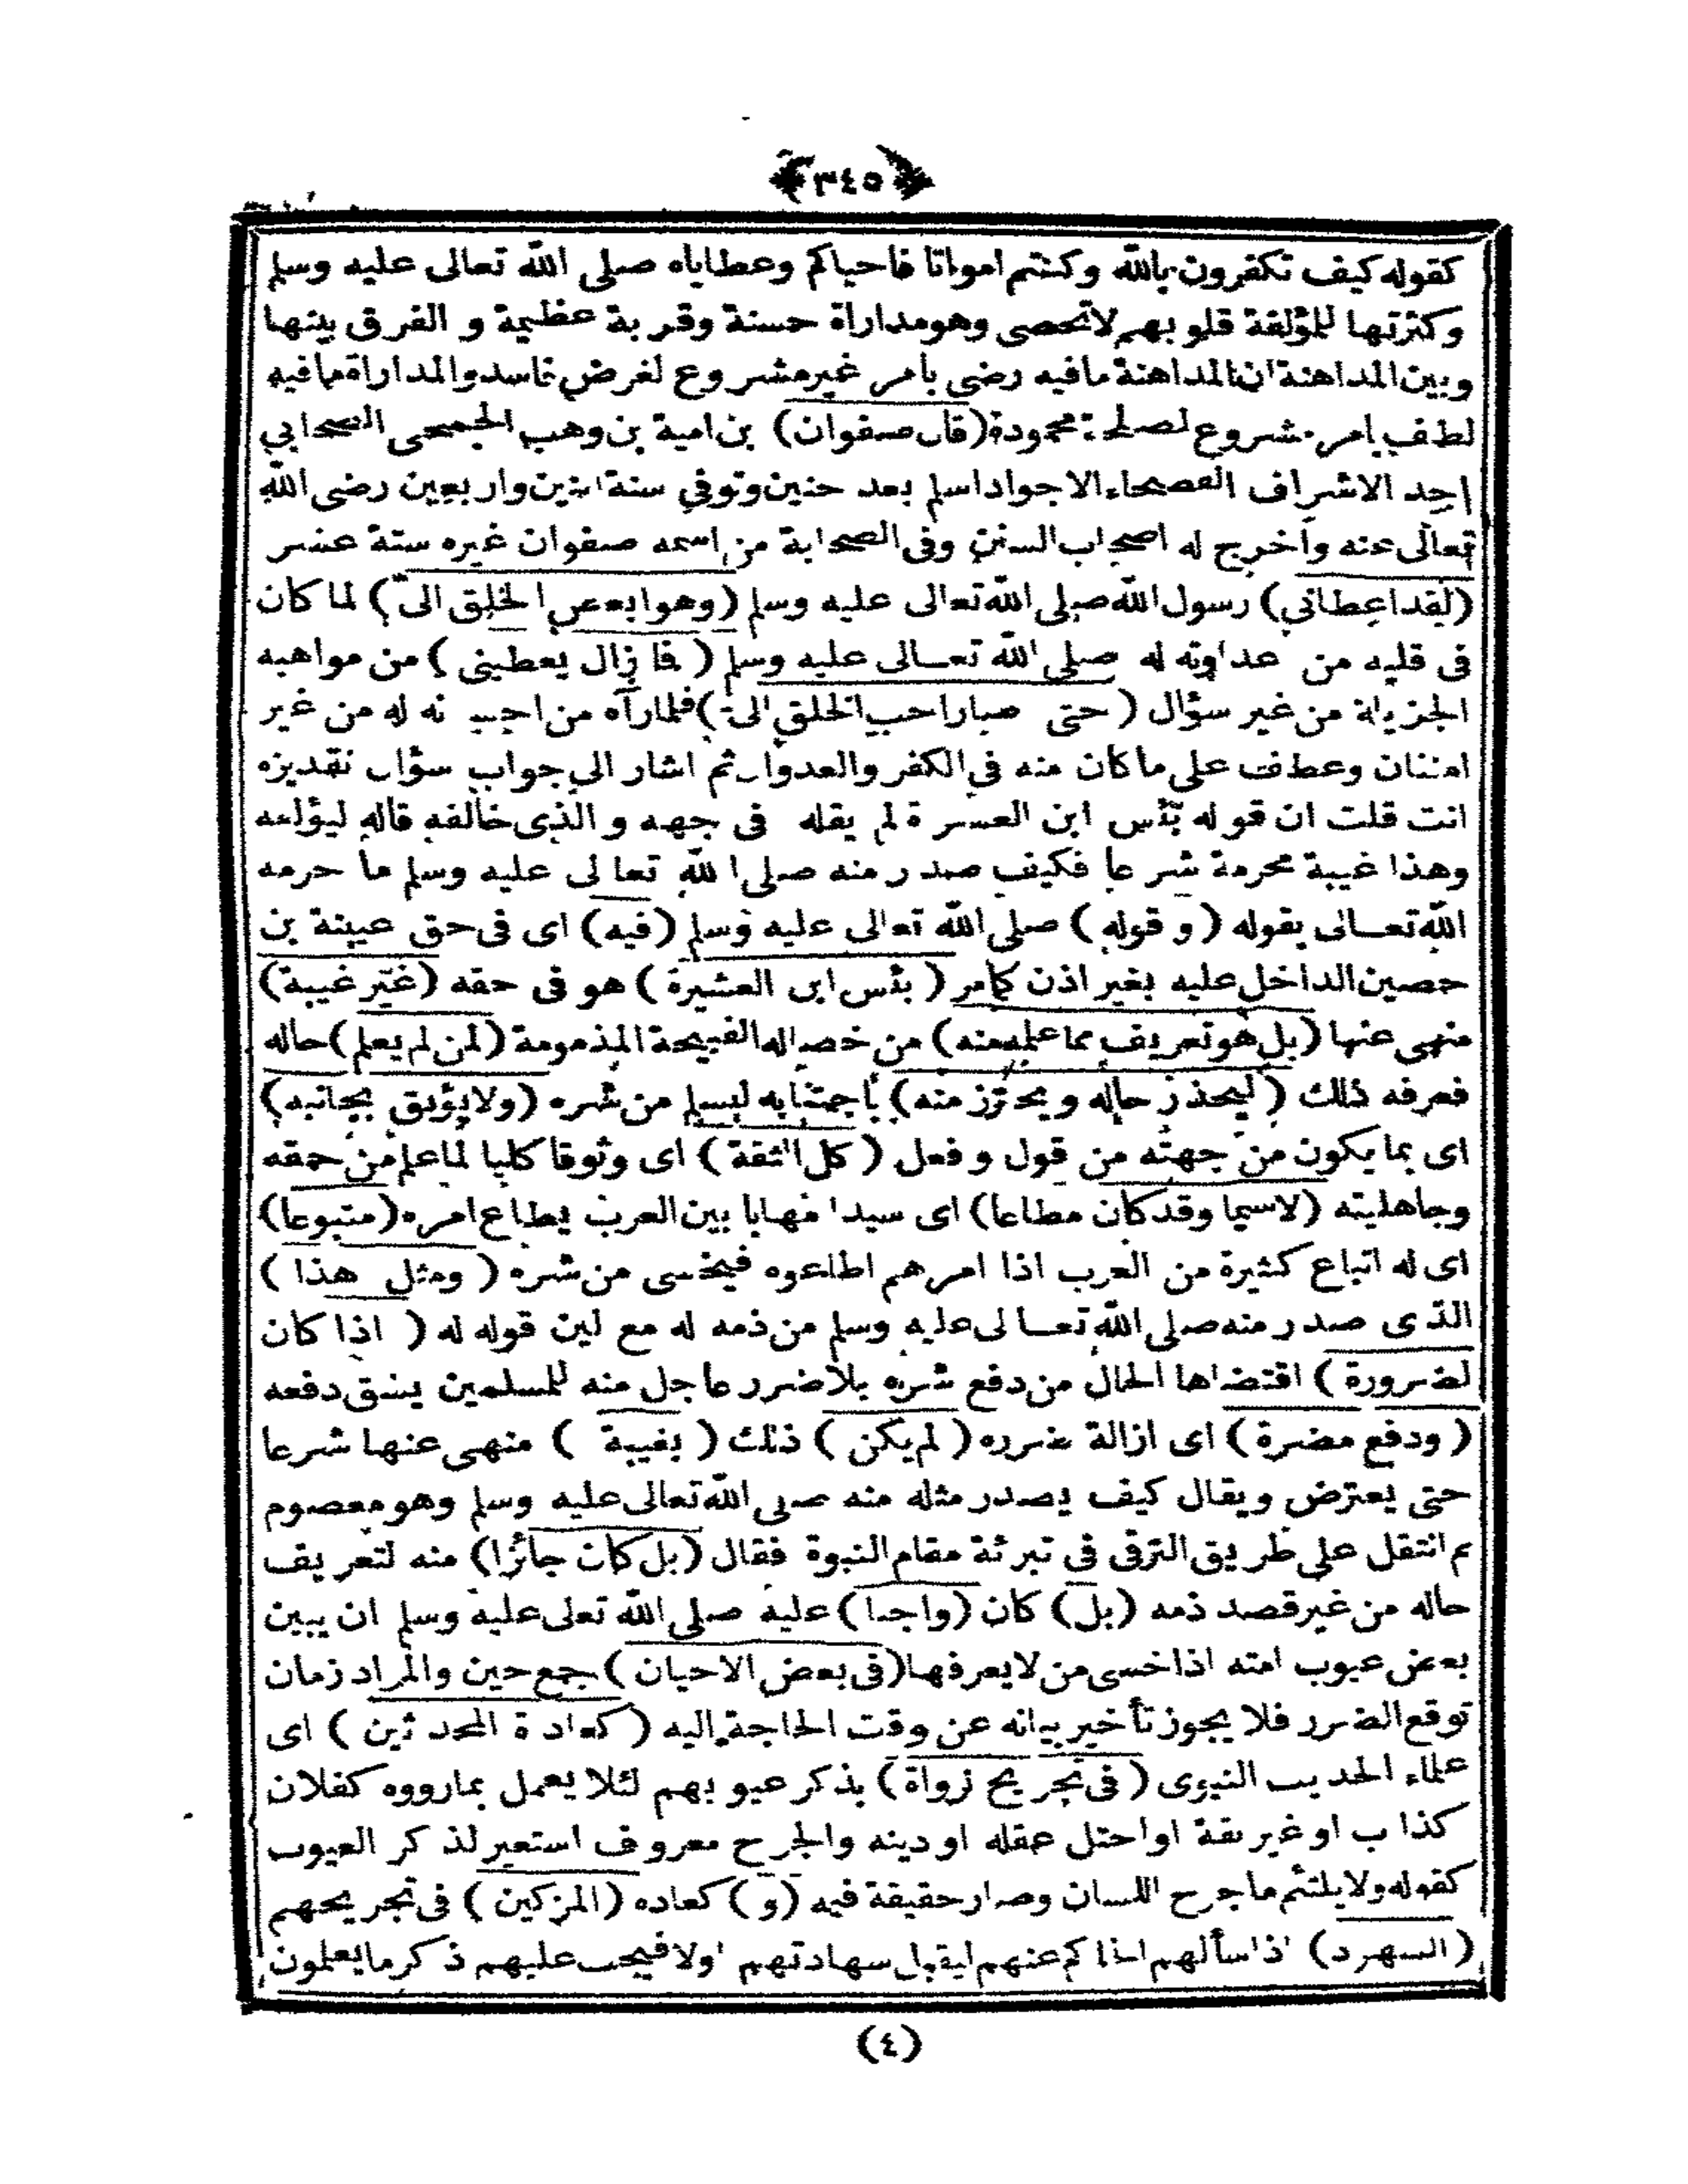 ﴿٣٤٥﴾
كقوله كيف تكفرون بالله وكنتم امواتا فاحياكم وعطاياه صلى الله تعالى عليه وسلم
وكثرتها للمؤلفة قلوبهم لا تحصى وهو مداراة حسنة وقربة عظيمة و الفرق بينها
وبين المداهنة ان المداهنة مافيه رضى بامر غير مشروع لغرض فاسد والمداراة مافيه
لطف بامر مشروع لمصلحة محمودة (قال صفوان) بن امية بن وهب الجمحى الصحابي
احد الاشراف الفصحاء الاجواد اسلم بعد حنين وتوفي سنة اثنين واربعين رضى الله
تعالى عنه وأخرج له اصحاب السنن وفى الصحابة من اسمه صفوان غيره ستة عشر
(لقد اعطاني) رسول الله صلى الله تعالى عليه وسلم (وهو ابغض الخلق الىّ) لما كان
فى قلبه من عداوته له صلى الله تعالى عليه وسلم (فا زال يعطينى) من مواهبه
الجزيلة من غير سؤال (حتى صار احب الخلق الىّ) فلما رآه من احسانه له من غير
امتنان وعطف على ما كان منه في الكفر والعدوان ثم اشار الى جواب سؤال تقديره
انت قلت ان قوله بئس ابن العشرة لم يقله فى جهه و الذى خالفه قاله ليؤلفه
وهذا غيبة محرمة شرعا فكيف صدر منه صلى الله تعالى عليه وسلم ما حرمه
الله تعالى بقوله (و قوله) صلى الله تعالى عليه وسلم (فيه) اى فى حق عيينة بن
حصين الداخل عليه بغير اذن كمامر (بئس ابن العشيرة) هو فى حقه (غير غيبة)
منهى عنها (بل هو تعريف مما علمه منه) من خصاله القبيحة المذمومة (لمن لم يعلم) حاله
فعرفه ذلك (ليحذر حاله و يحترز منه) باجتنابه ليسلم من شره (ولا يوثق بجانبه)
اى بما يكون من جهته من قول و فعل (كل الثقة) اى وثوقا كليا لما علم من حمقه
وجاهليته (لاسيما وقد كان مطاعا) اى سيدا مهابا بين العرب يطاع امره (متبوعا)
اى له اتباع كثيرة من العرب اذا امرهم اطاعوه فيخشى من شره (ومثل هذا)
الذى صدر منه صلى الله تعالى عليه وسلم من ذمه له مع لين قوله له (اذا كان
لضرورة) اقتضاها الحال من دفع شره بلا ضرر عاجل منه للمسلمين يشق دفعه
(ودفع مضرة) اى ازالة ضرره (لم يكن) ذلك (بغيبة) منهى عنها شرعا
حتى يعترض ويقال كيف يصدر مثله منه صلى الله تعالى عليه وسلم وهو معصوم
ثم انتقل على طريق الترقى فى تبرئة مقام النبوة فقال (بل كان جائزا) منه لتعريف
حاله من غير قصد ذمه (بل) كان (واجبا) عليه صلى الله تعلى عليه وسلم ان يبين
بعض عيوب امته اذا خشى من لا يعرفها (فى بعض الاحيان) جمع حين والمراد زمان
توقع الضرر فلا يجوز تأخير بيانه عن وقت الحاجة اليه (كعادة المحدثين) اى
علماء الحديث النبوى (فى تجريح رواة) بذكر عيوبهم لئلا يعمل بمارووه كفلان
كذاب او غير ثقة او اختل عقله او دينه والجرح معروف استعير لذكر العيوب
كقوله ولا يلتئم ما جرح اللسان وصار حقيقة فيه (و) كعاده (المزكين) فى تجريحهم
(الشهود) اذا سألهم الحاكم عنهم ليقبل شهادتهم اولا فيجب عليهم ذكر ما يعلمون
(٤)